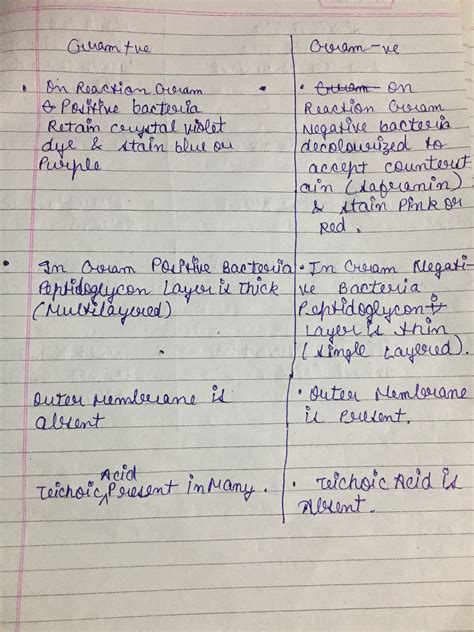 Gram +ve
• On Reaction Gram
& Positive bacteria
Retain crystal violet
dye & stain blue or
Purple
• In Gram Positive Bacteria
Peptidoglycon Layer is Thick
(Multilayered)
Outer Membrane is
absent
Acid
Teichoic ^ Present in Many.
Gram -ve
• Gram on
Reaction Gram
Negative bacteria
decolourized to
accept counterst
ain (safranin)
& stain Pink or
Red.
• In Gram Negati-
ve Bacteria
Peptidoglycon
Layer is thin
(single Layered).
• Outer Membrane
is Present.
• Teichoic Acid is
Absent.